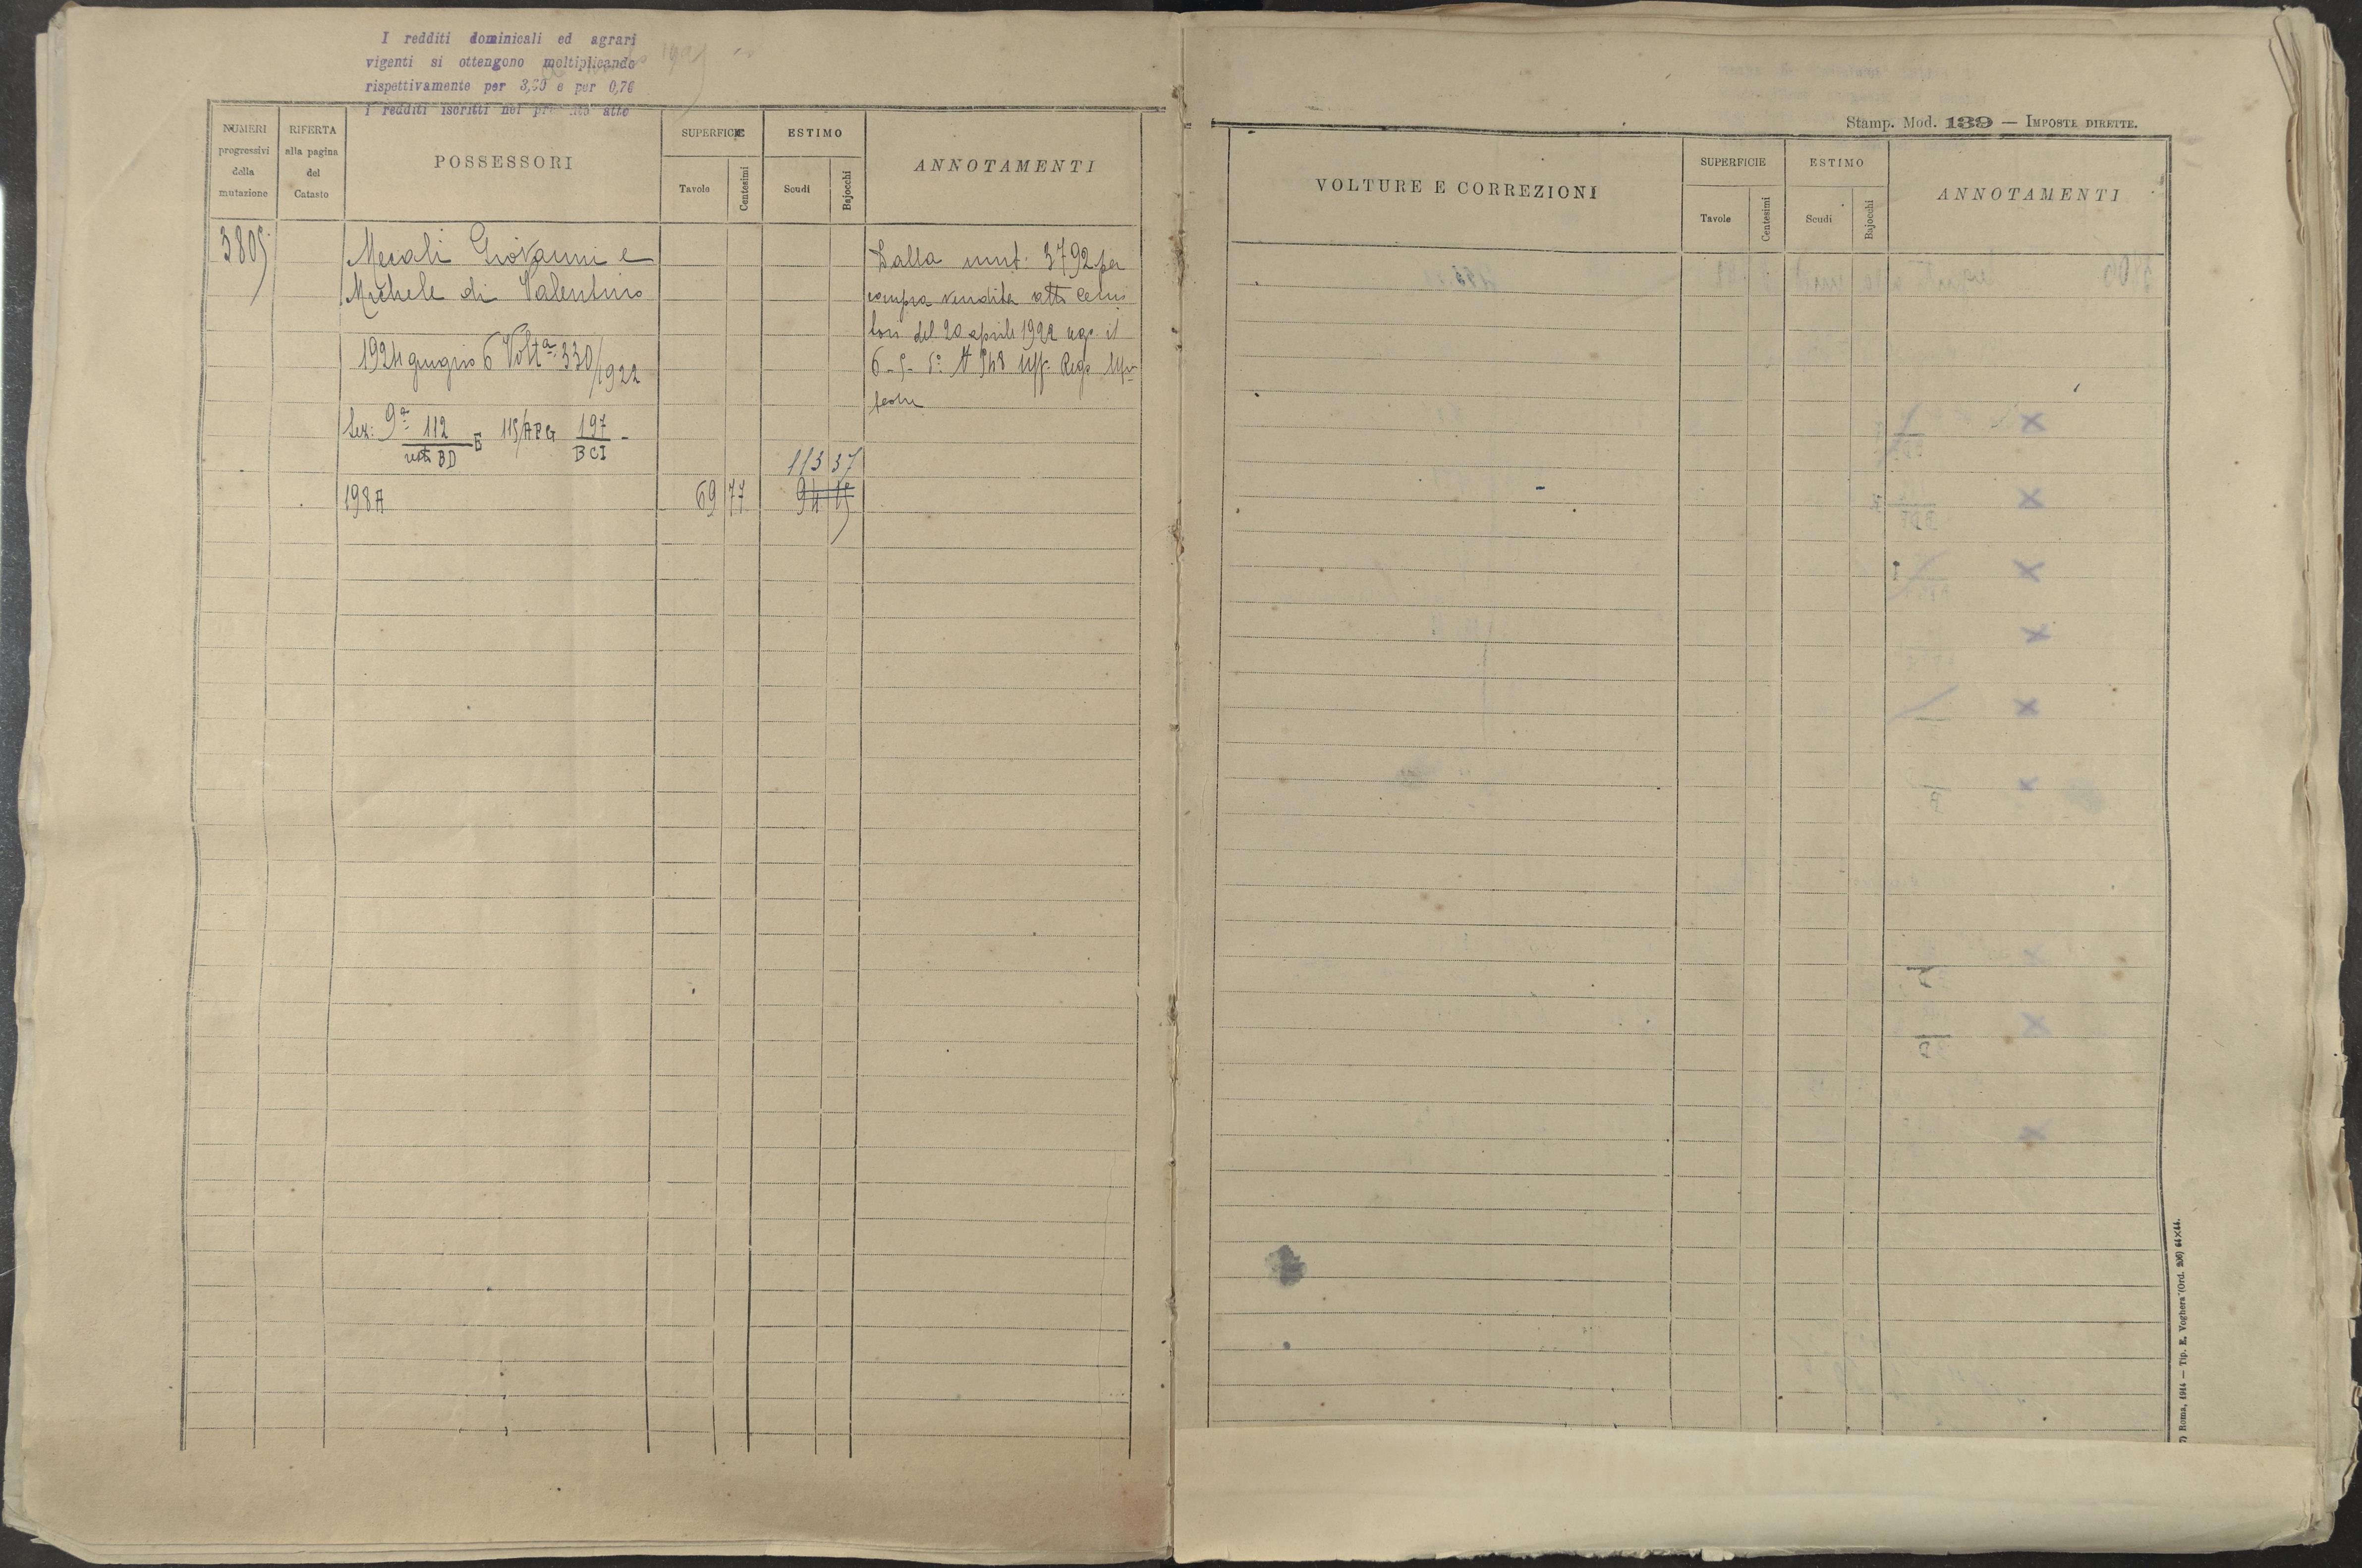 I redditi dominicali ed agrari
vigenti si ottengono moltiplicando
rispettivamente per 3,60 e per 0,76
i redditi iscritti nel presente atto
NUMERI
progressivi
della
mutazione
RIFERTA
alla pagina
del
Catasto
POSSESSORI
SUPERFICIE
Tavole
Centesimi
ESTIMO
Scudi
Bajocchi
ANNOTAMENTI
3805
Mecali Giovanni e
Michele di Valentino
1924 giugno 6 Volta: 330/1922
Sez: 9a 112 E 115/AFG 197 -
resto BD BCI
113 37
198 A 69 77 94 15
Dalla mut. 3792 per
compra vendita atto
del 20 aprile 1922 reg. il
6-5- N 548 Uff. Reg.
Stamp. Mod. 139 — IMPOSTE DIRETTE.
VOLTURE E CORREZIONI
SUPERFICIE
Tavole
Centesimi
ESTIMO
Scudi
Bajocchi
ANNOTAMENTI
7) Roma, 1914 — Tip. E. Voghera (Ord. 206) 44×44.